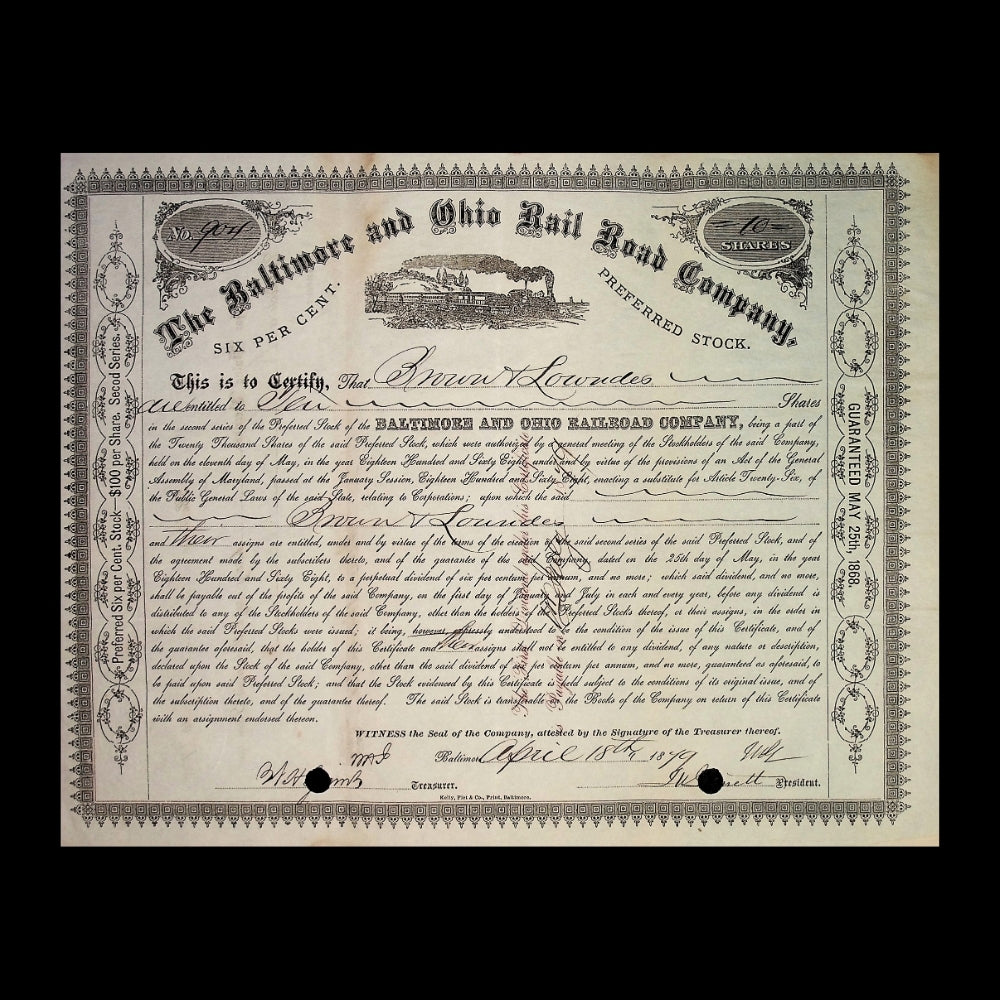 No. 904
10
SHARES
The Baltimore and Ohio Rail Road Company.
SIX PER CENT. PREFERRED STOCK.
This is to Certify, That Brown & Lowndes
are entitled to Ten Shares
in the second series of the Preferred Stock of the BALTIMORE AND OHIO RAILROAD COMPANY, being a part of
the Twenty Thousand Shares of the said Preferred Stock, which were authorized by a general meeting of the Stockholders of the said Company,
held on the eleventh day of May, in the year Eighteen Hundred and Sixty Eight, under and by virtue of the provisions of an Act of the General
Assembly of Maryland, passed at the January Session, Eighteen Hundred and Sixty Eight, enacting a substitute for Article Twenty-Six, of
the Public General Laws of the said State, relating to Corporations; upon which the said
Brown & Lowndes
and Their assigns are entitled, under and by virtue of the terms of the creation of the said second series of the said Preferred Stock, and of
the agreement made by the subscribers thereto, and of the guarantee of the said Company, dated on the 25th day of May, in the year
Eighteen Hundred and Sixty Eight, to a perpetual dividend of six per centum per annum, and no more; which said dividend, and no more,
shall be payable out of the profits of the said Company, on the first day of January and July in each and every year, before any dividend is
distributed to any of the Stockholders of the said Company, other than the holders of the Preferred Stocks thereof, or their assigns, in the order in
which the said Preferred Stocks were issued; it being, however expressly understood to be the condition of the issue of this Certificate, and of
the guarantee aforesaid, that the holder of this Certificate and Their assigns shall not be entitled to any dividend, of any nature or description,
declared upon the Stock of the said Company, other than the said dividend of six per centum per annum, and no more, guaranteed as aforesaid, to
be paid upon said Preferred Stock; and that the Stock evidenced by this Certificate is held subject to the conditions of its original issue, and of
the subscription thereto, and of the guarantee thereof. The said Stock is transferable on the Books of the Company on return of this Certificate
with an assignment endorsed thereon.
WITNESS the Seal of the Company, attested by the Signature of the Treasurer thereof.
Baltimore April 18th 1879
Treasurer. President.
Kelly, Piet & Co., Print, Baltimore.
Preferred Six per Cent. Stock—$100 per Share. Secod Series.
GUARANTEED MAY 25th, 1868.